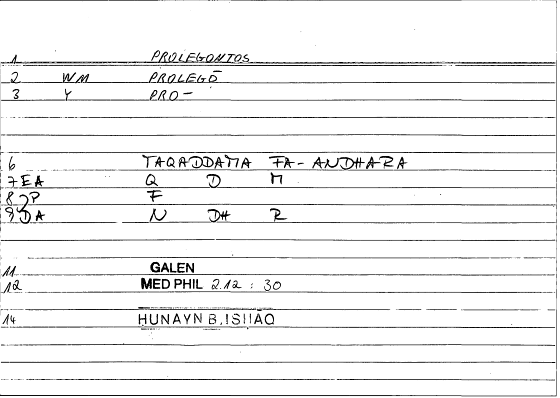 1 PROLEGONTOS
2 WM PROLEGŌ
3 Y PRO-
6 TAQADDAMA FA-ANDHARA
7 EA Q D M
8 JP F
9 DA N DH R
11 GALEN
12 MED PHIL 2.12 : 30
14 HUNAYN B.ISHAQ